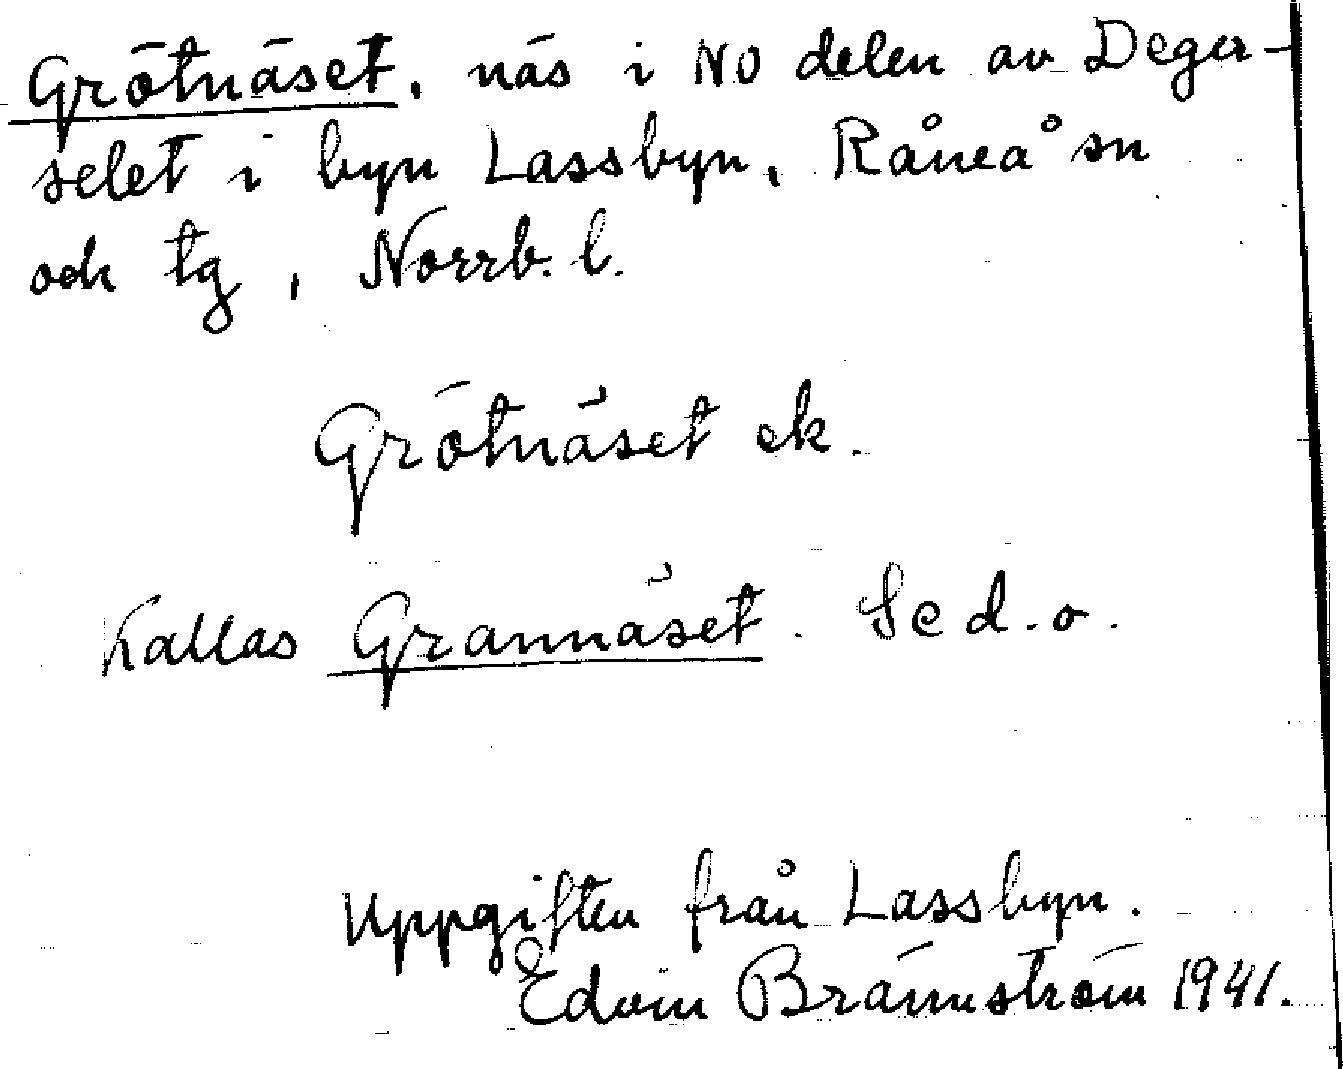 Grötnäset, näs i NO delen av Deger-
selet i byn Lassbyn, Råneå sn
och tg, Norrb. l.
Grötnäset ek.
Kallas Grannäset. Se d. o.
Uppgiften från Lassbyn.
Edvin Brännström 1941.